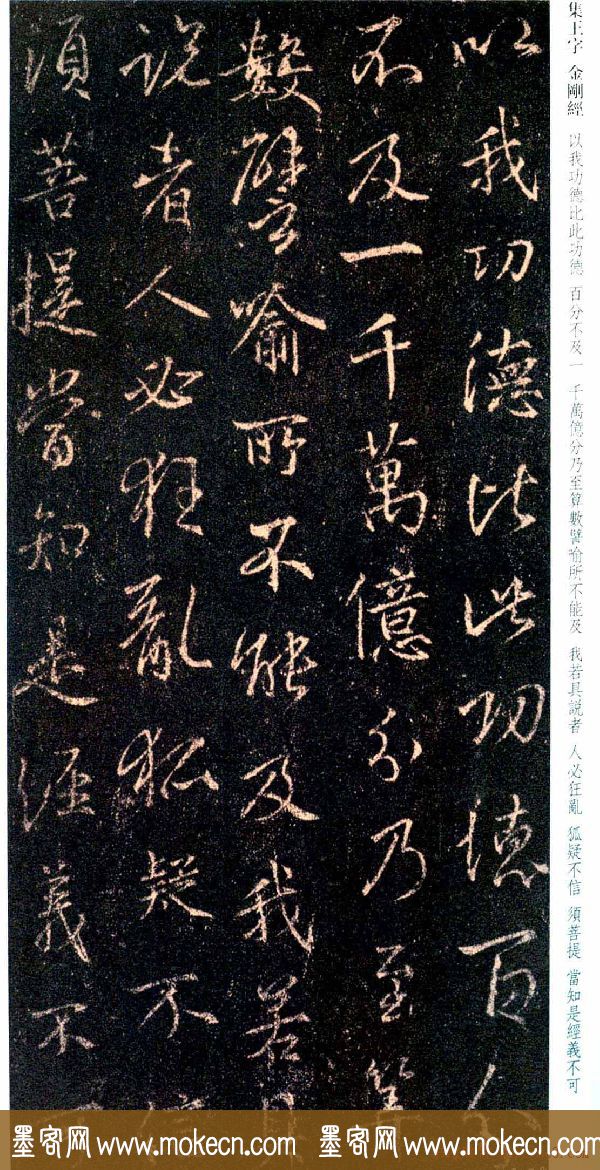 集王字 金剛經 以我功德比此功德 百分不及一 千萬億分乃至算數譬喻所不能及 我若具説者 人必狂亂 狐疑不信 須菩提 當知是經義不可
以我功德比此功德百分
不及一千萬億分乃至算
數譬喻所不能及我若具
説者人必狂亂狐疑不信
須菩提當知是經義不
墨客网 www.mokecn.com 墨客网 www.mokecn.com